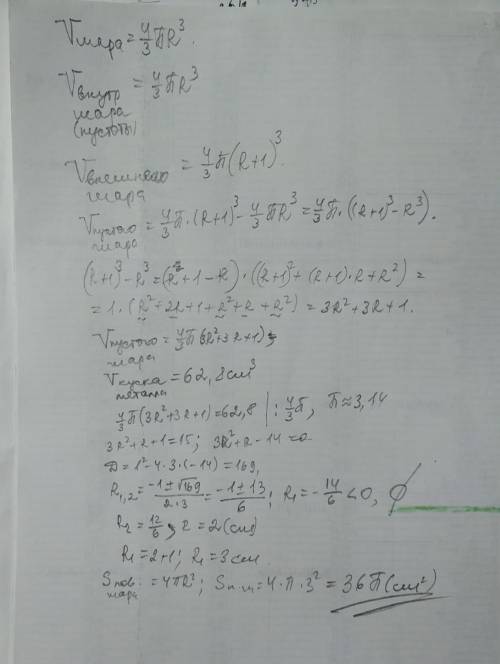 V шара = 4/3 πR³.
V внутр шара (пустоты) = 4/3 πR³
V внешнего шара = 4/3 π(R+1)³.
V пустого шара = 4/3 π·(R+1)³ - 4/3 πR³ = 4/3 π·((R+1)³ - R³).
(R+1)³ - R³ = (R+1-R)·((R+1)² + (R+1)·R + R²) =
= 1·(R² + 2R + 1 + R² + R + R²) = 3R² + 3R + 1.
V пустого шара = 4/3 π(3R²+3R+1);
V куска металла = 62,8 см³
4/3 π(3R²+3R+1) = 62,8 | : 4/3 π, π ≈ 3,14
3R²+R+1=15; 3R²+R-14=0
D = 1² - 4·3·(-14) = 169,
R₁,₂ = (-1±√169)/(2·3) = (-1±13)/6; R₁ = -14/6 < 0, ∅
R₂ = 12/6, R = 2 (см)
R₁ = 2+1; R₁ = 3 см
S пов. шара = 4πR²; S п.ш = 4·π·3² = 36π (см²)